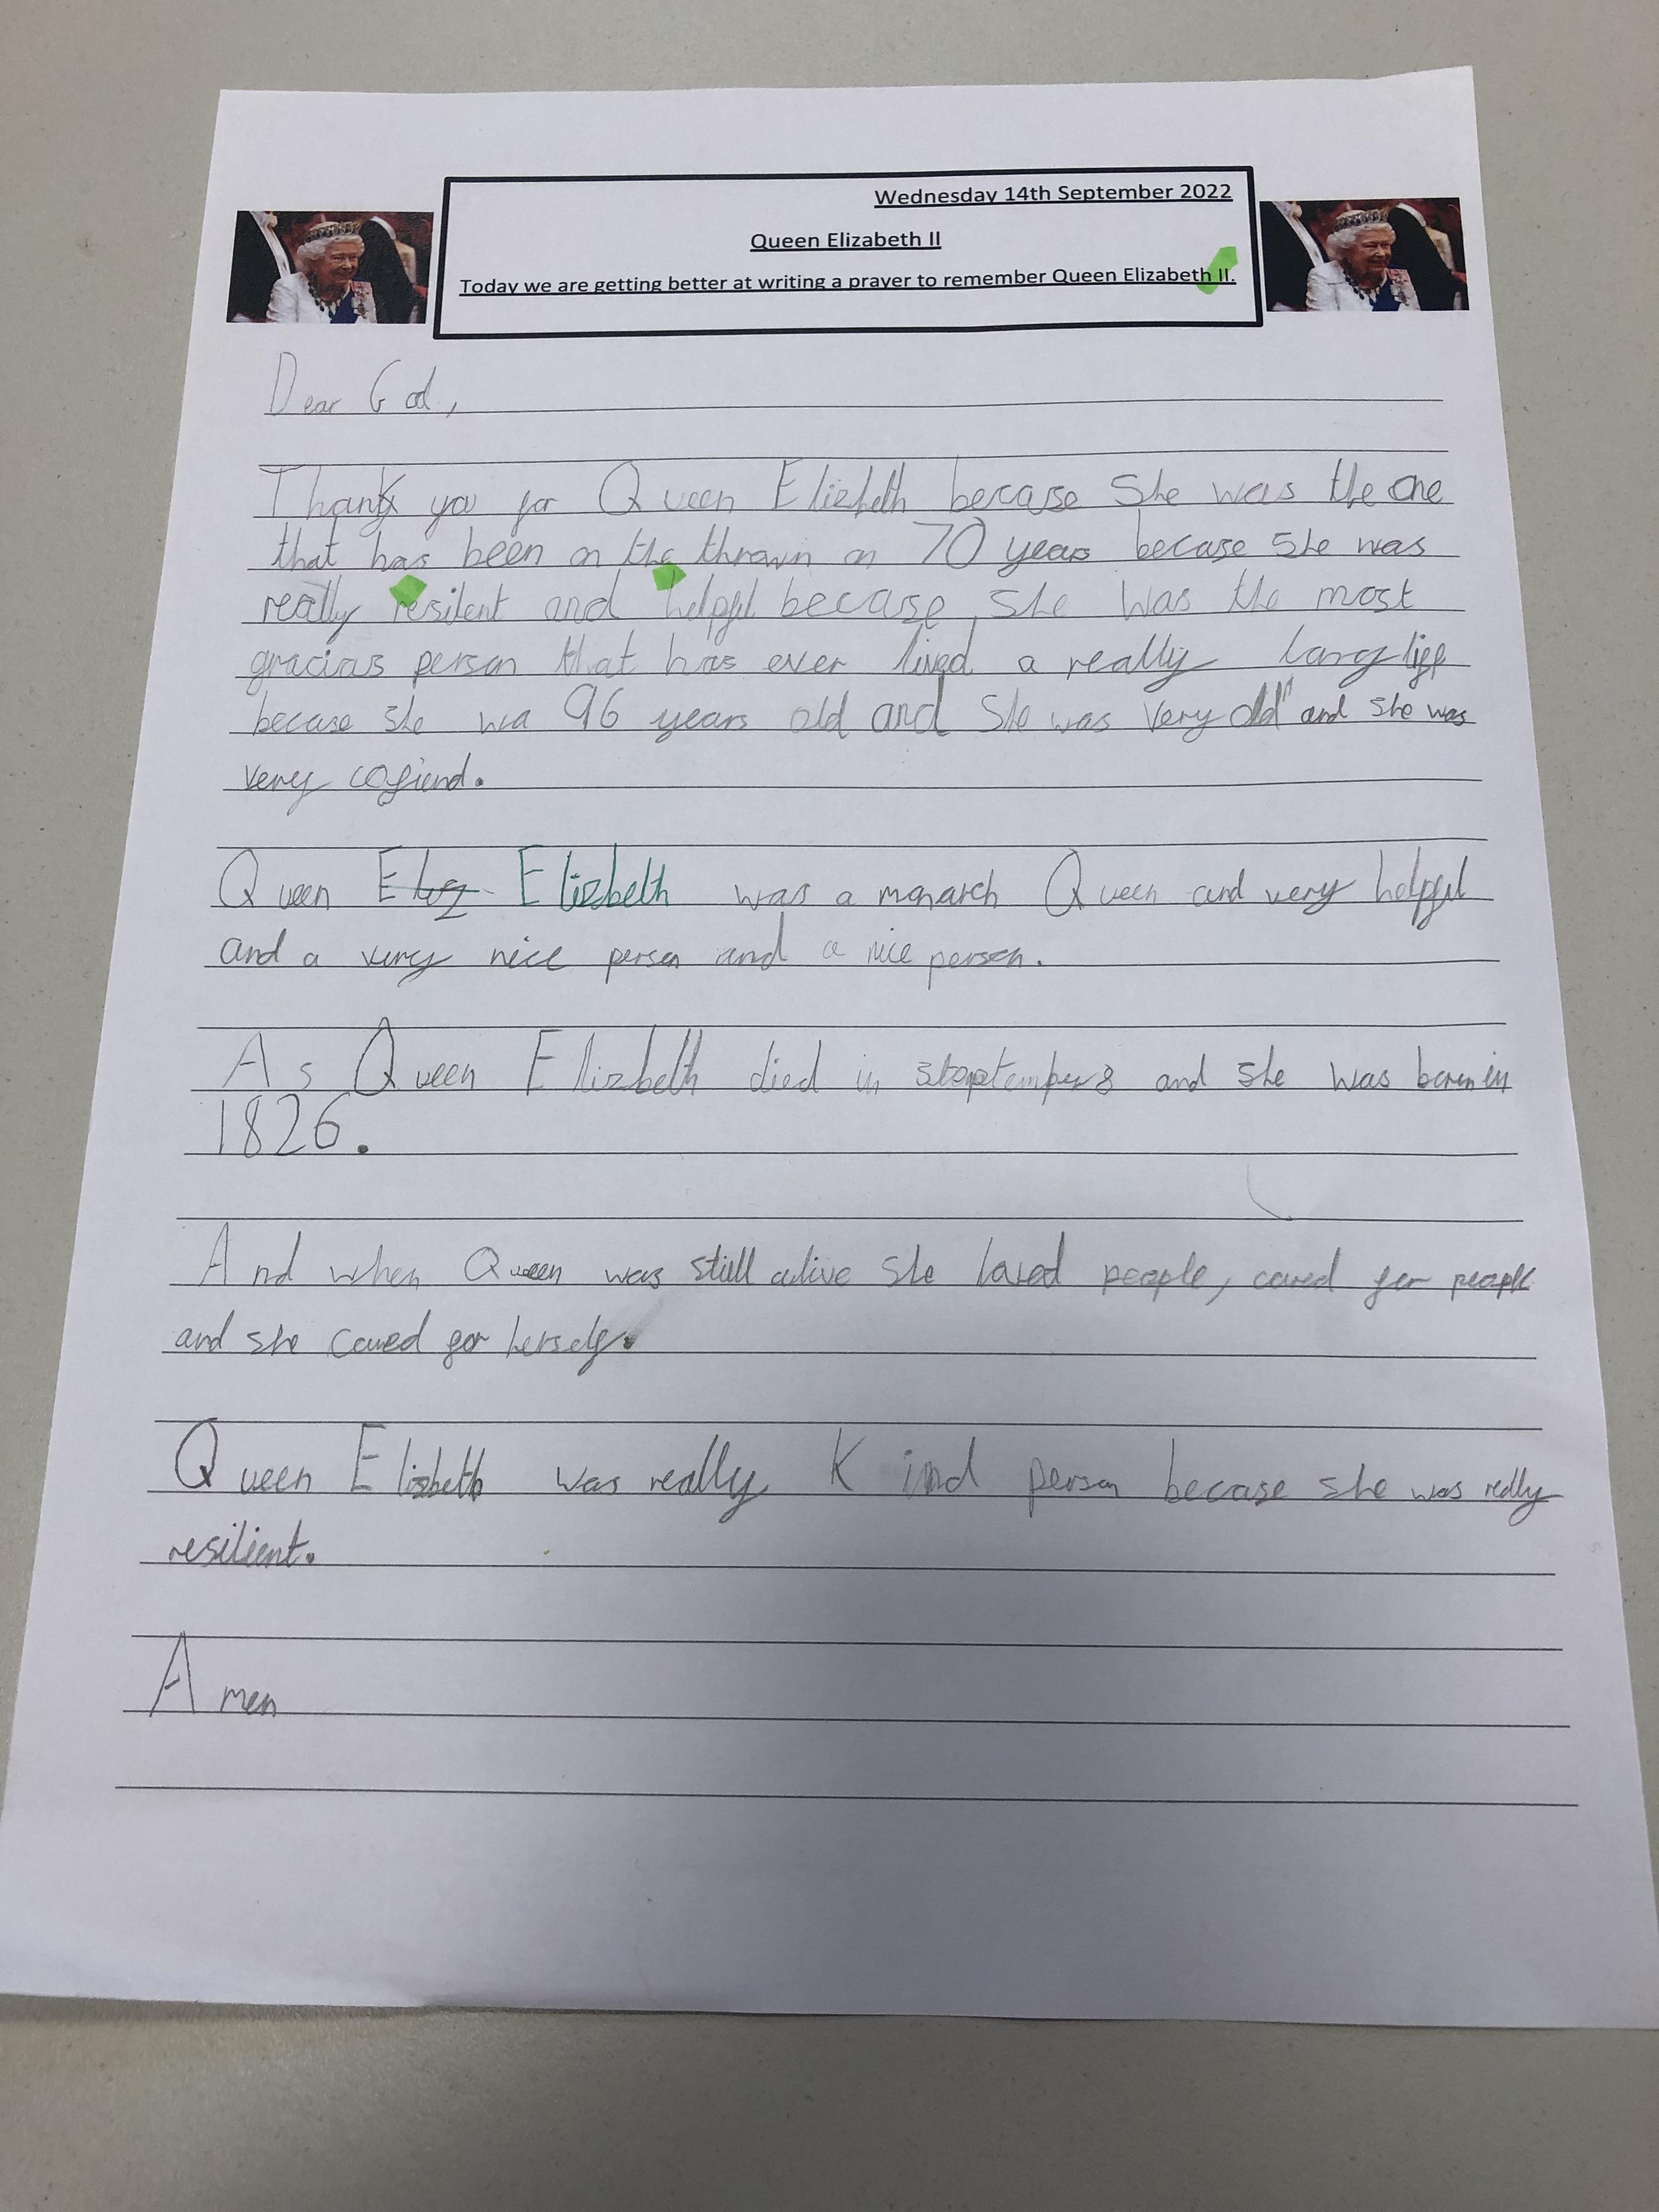 Wednesday 14th September 2022
Queen Elizabeth II
Today we are getting better at writing a prayer to remember Queen Elizabeth II.
Dear God,
Thank you for Queen Elizbeth becase she was the one
that has been on the thrown on 70 years becase she was
really resilent and helpful becase, she was the most
gracias person that has ever lived a really long life
becase she wa 96 years old and she was very old and she was
very cofiend.
Queen Elizbeth was a monarch Queen and very helpful
and a very nice person and a nice person.
As Queen Elizbeth died in september 8 and she was born in
1826.
And when Queen was still alive she loved people, cared for people
and she cared for herself.
Queen Elizbeth was really Kind person becase she was really
resilient.
Amen